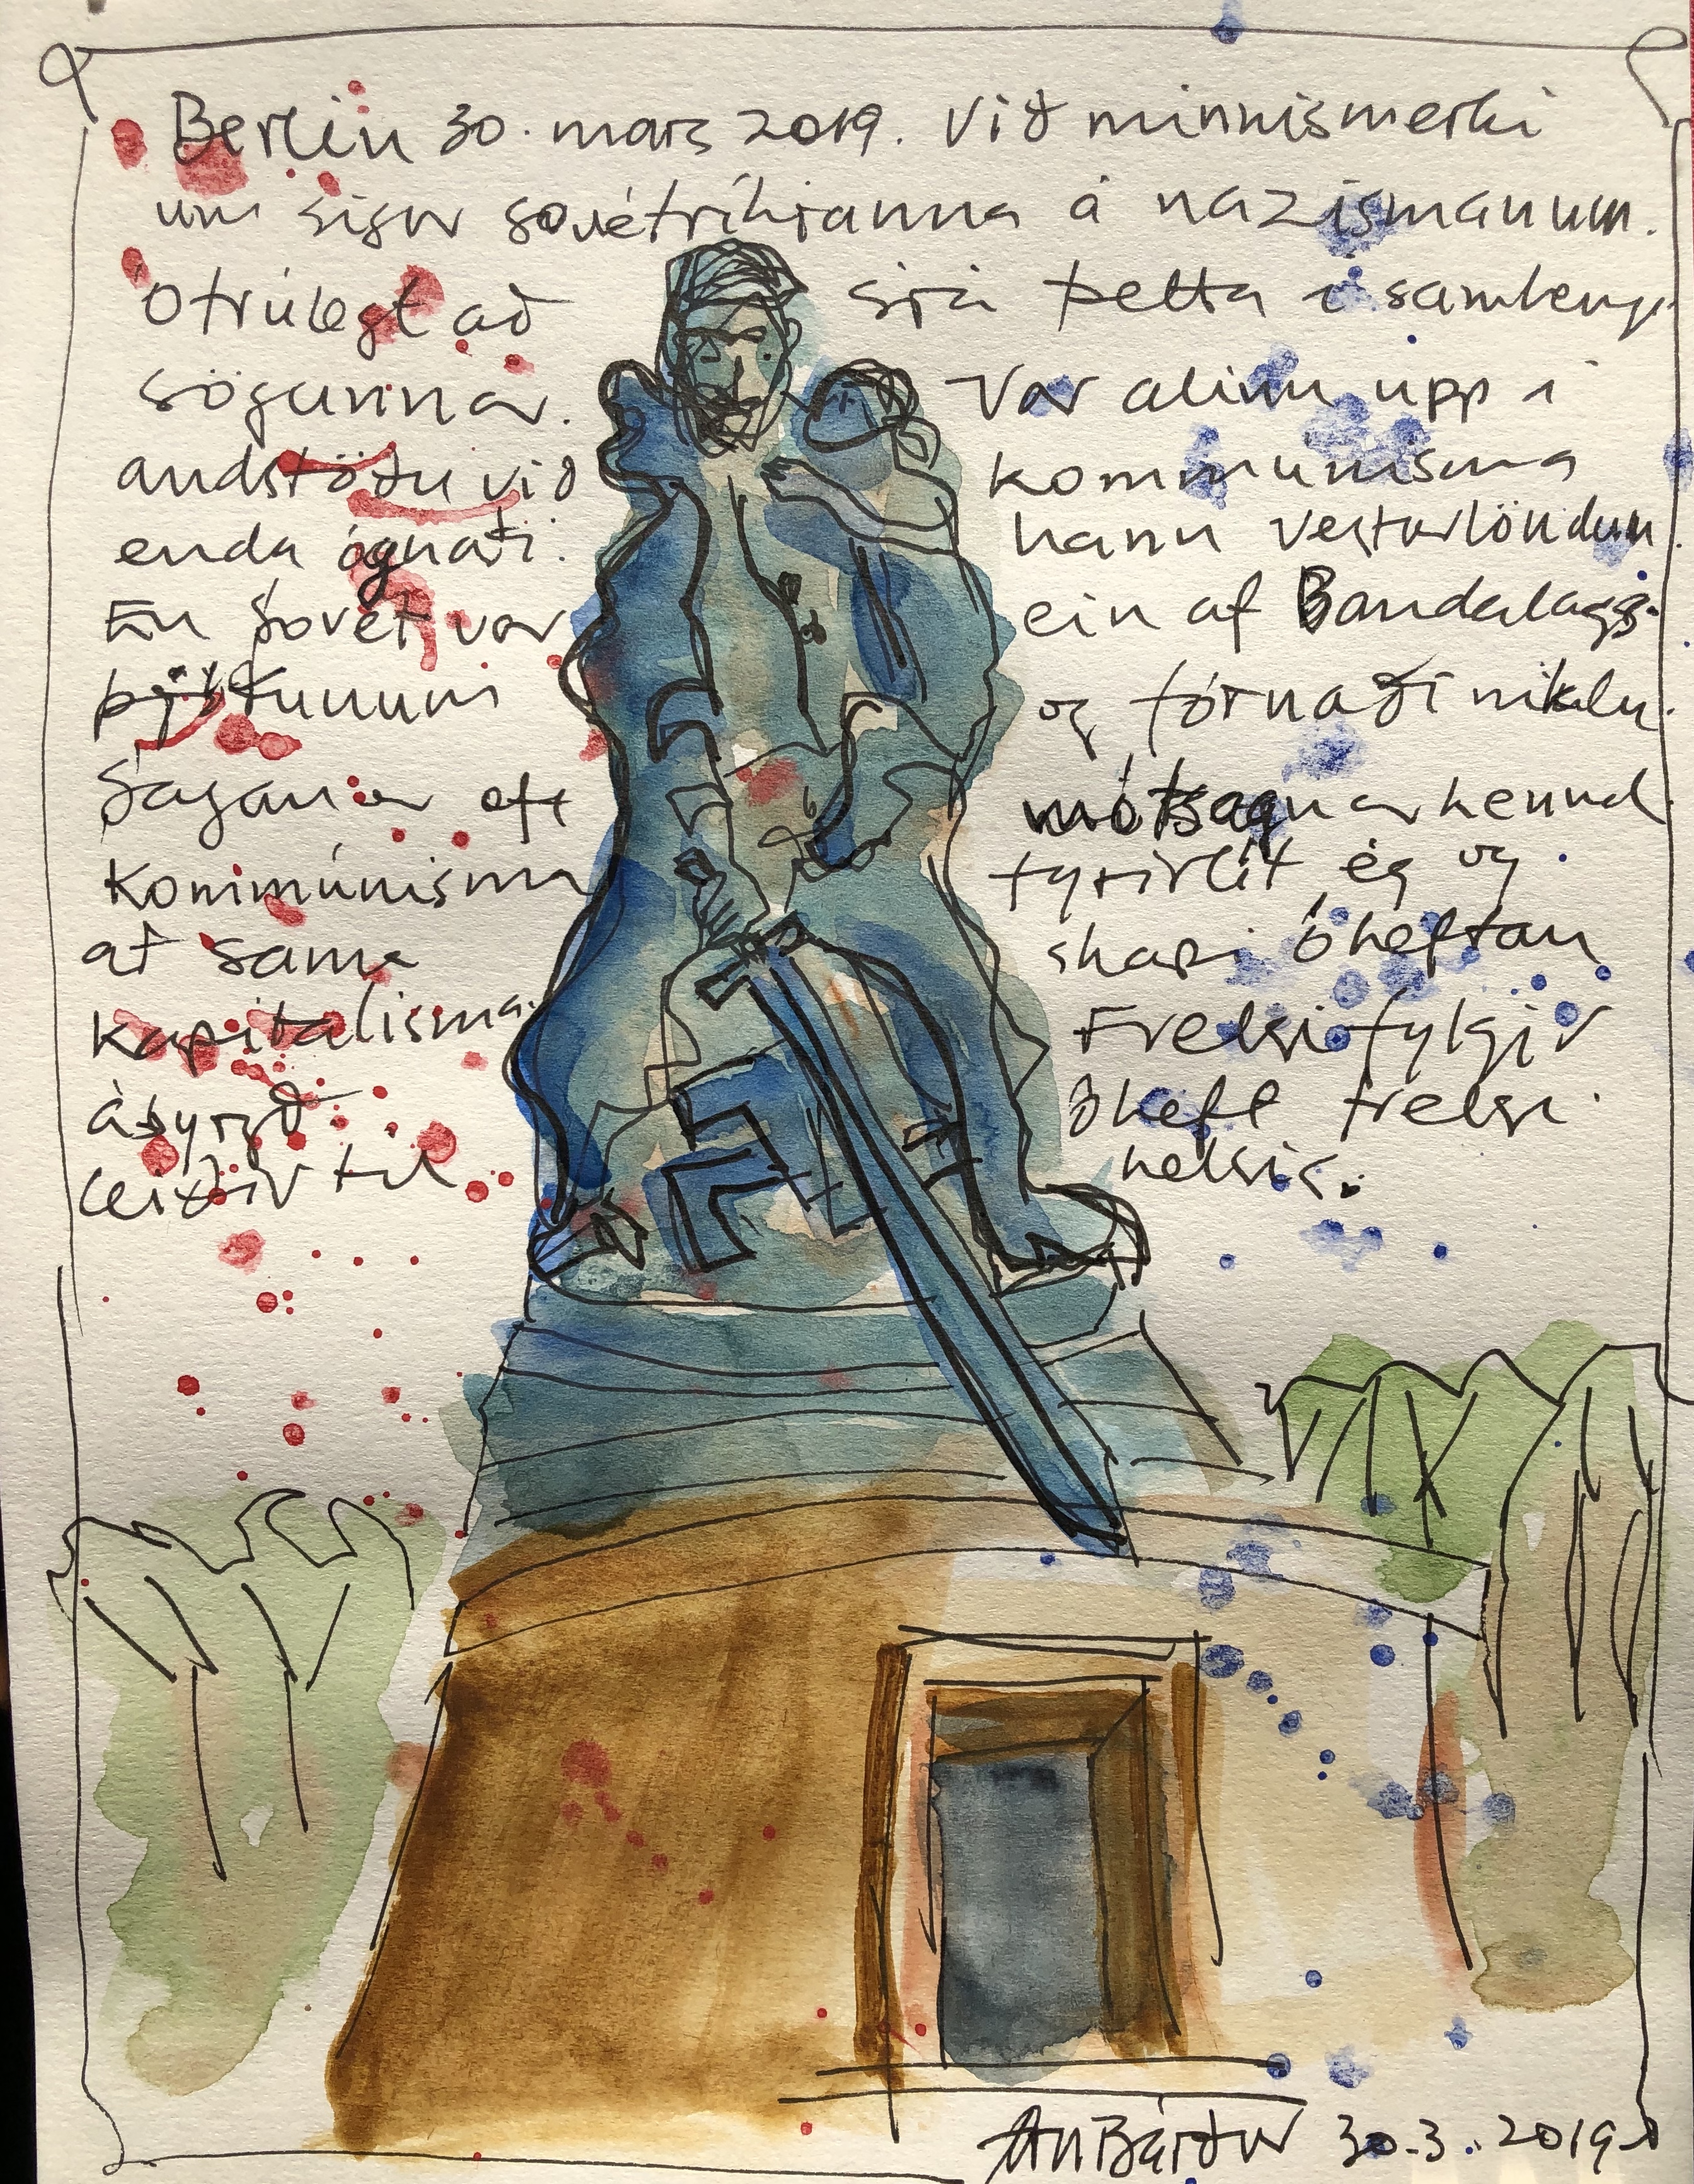 Berlin 30. mars 2019. Við minnismerki
um sigur sovétríkjanna á nazismanum.
Ótrúlegt að sjá þetta í samhengi
sögunnar. Var alinn upp í
andstöðu við kommunisma
enda ógnaði hann Vesturlöndum.
En Sovét var ein af Bandalags-
þjóðunum og fórnaði miklu.
Sagan er oft mótsagnarkennd.
Kommúnisma fyrirlít ég og
að sama skapi óheftan
kapitalisma. Frelsi fylgir
ábyrgð óheft frelsi
leiðir til helsis.
30.3.2019